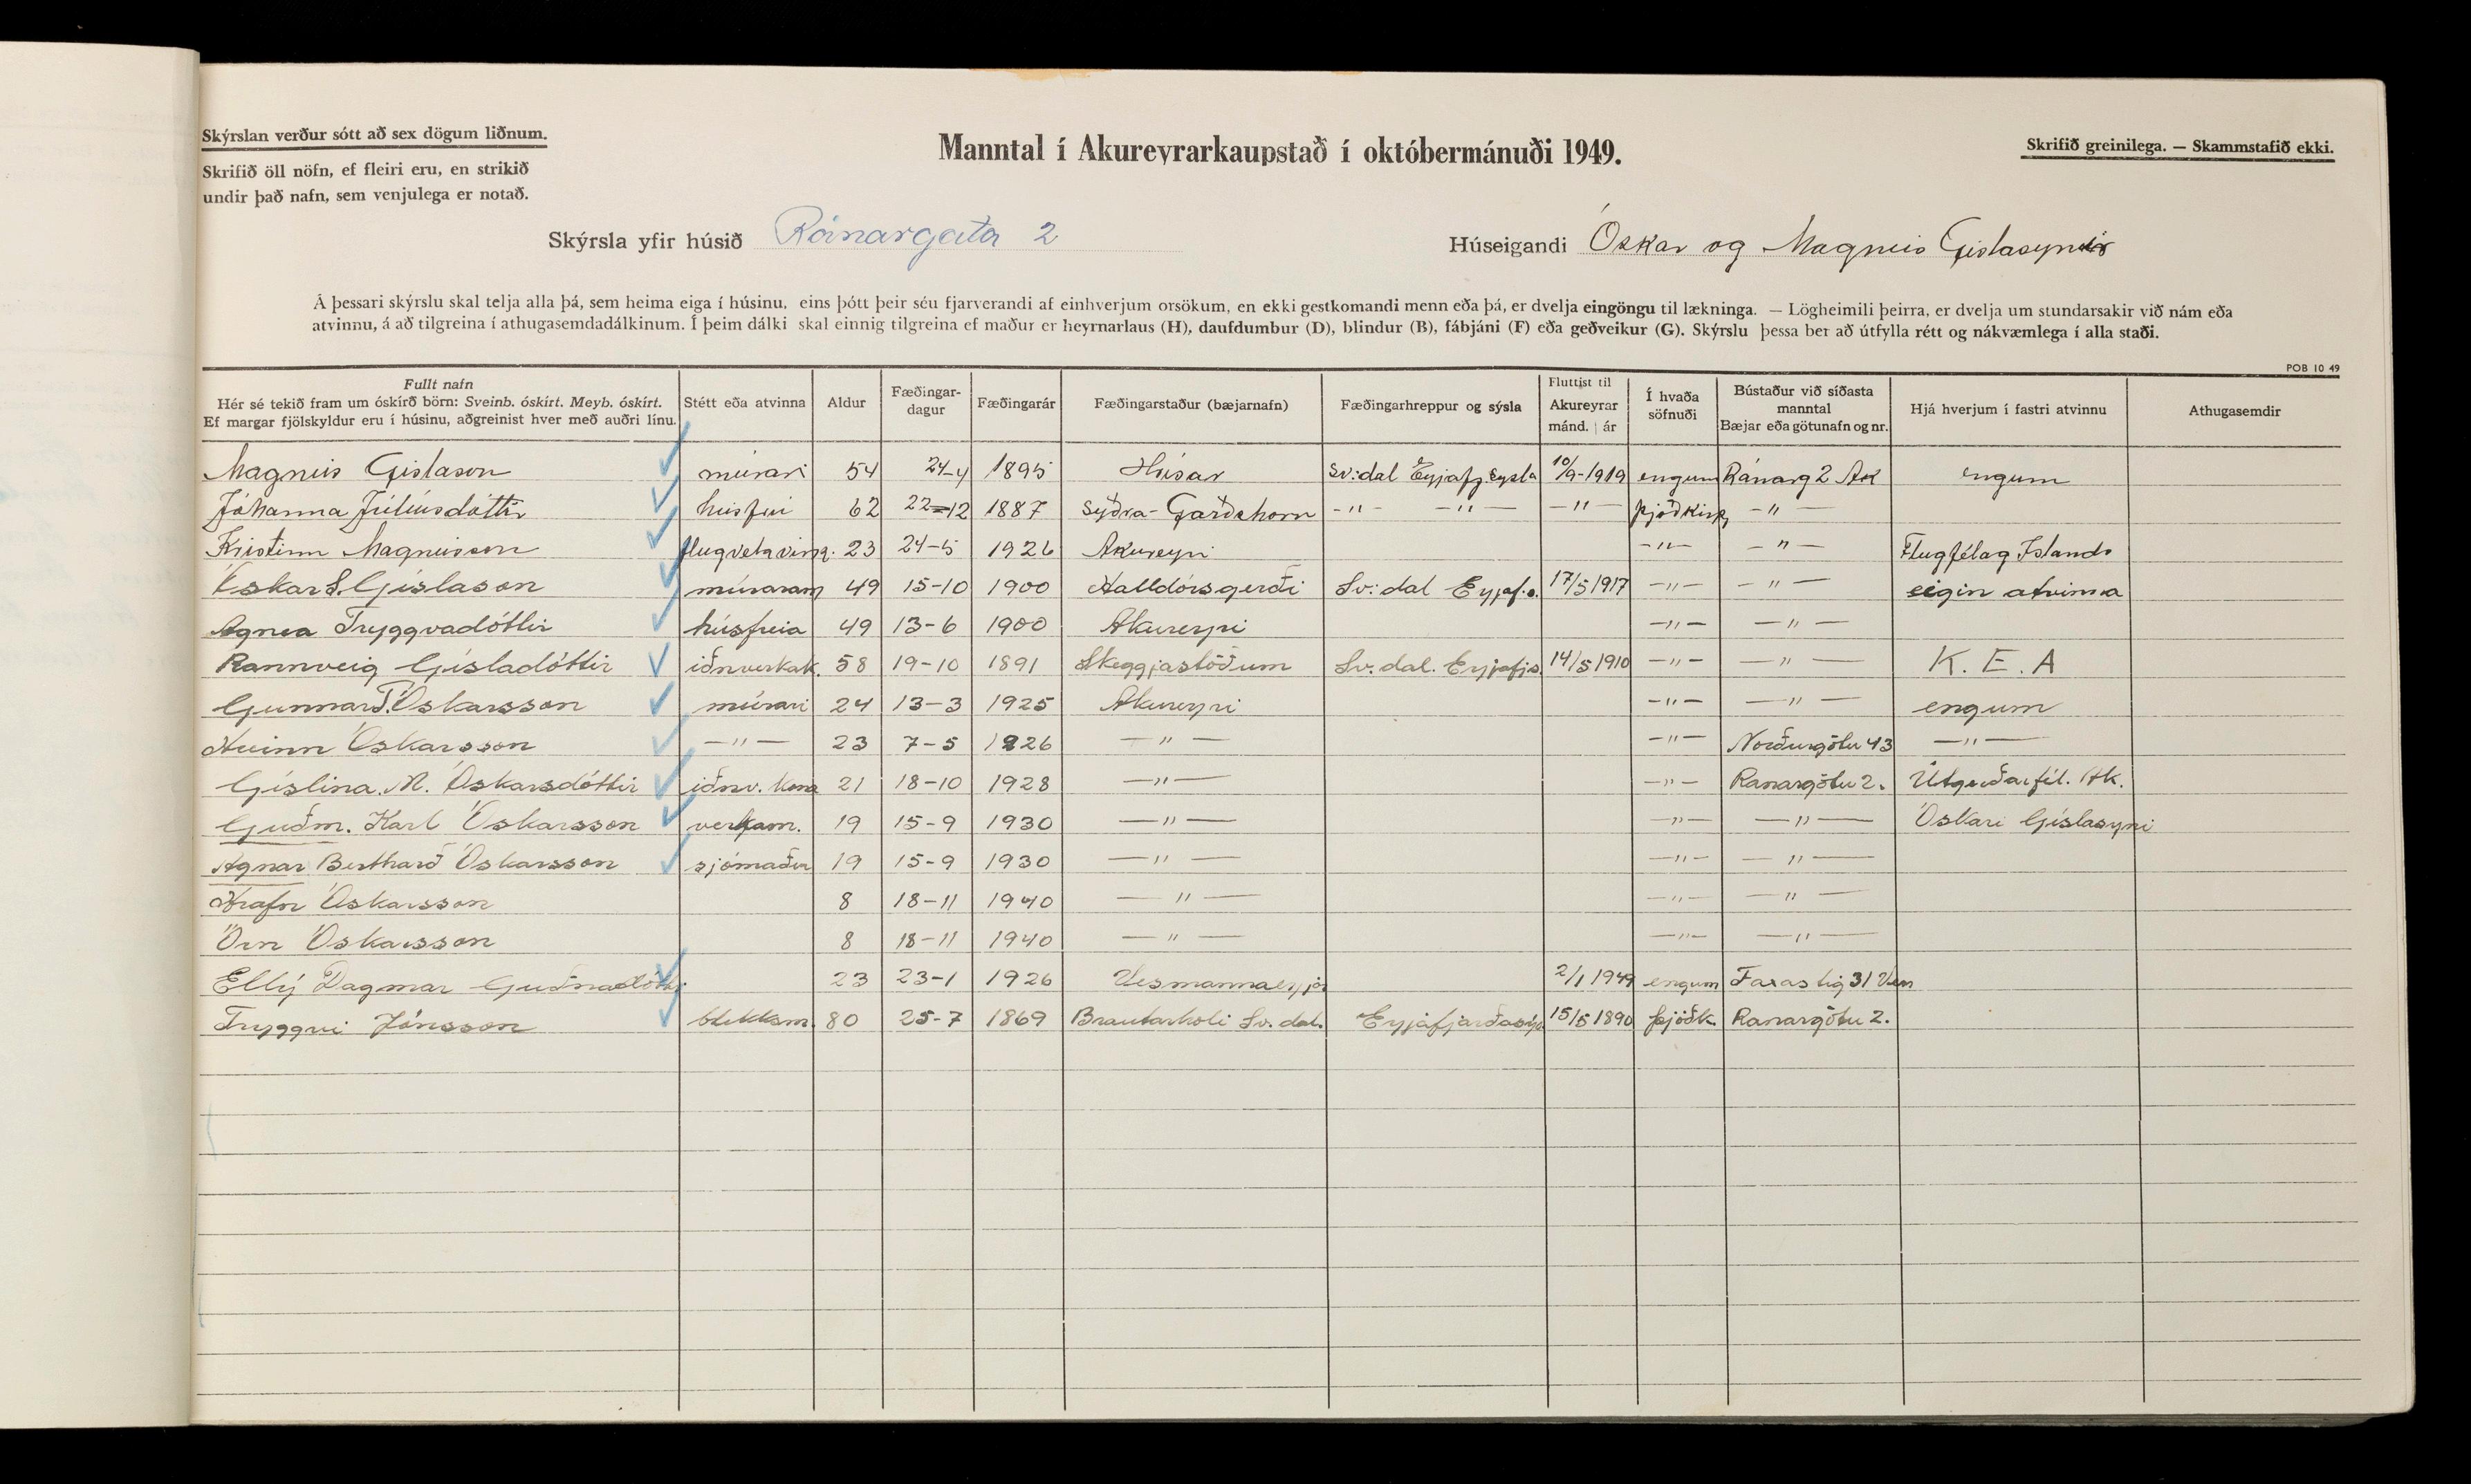 Skýrslan verður sótt að sex dögum liðnum.
Skrifið öll nöfn, ef fleiri eru, en strikið
undir það nafn, sem venjulega er notað.
Manntal í Akureyrarkaupstað í októbermánuði 1949.
Skrifið greinilega. — Skammstafið ekki.
Skýrsla yfir húsið Ránargata 2
Húseigandi Óskar og Magnús Gíslasynir
Á þessari skýrslu skal telja alla þá, sem heima eiga í húsinu, eins þótt þeir séu fjarverandi af einhverjum orsökum, en ekki gestkomandi menn eða þá, er dvelja eingöngu til lækninga. — Lögheimili þeirra, er dvelja um stundarsakir við nám eða
atvinnu, á að tilgreina í athugasemdadálkinum. Í þeim dálki skal einnig tilgreina ef maður er heyrnarlaus (H), daufdumbur (D), blindur (B), fábjáni (F) eða geðveikur (G). Skýrslu þessa ber að útfylla rétt og nákvæmlega í alla staði.
POB 10 49
Fullt nafn
Hér sé tekið fram um óskírð börn: Sveinb. óskírt. Meyb. óskírt.
Ef margar fjölskyldur eru í húsinu, aðgreinist hver með auðri línu.
Stétt eða atvinna
Aldur
Fæðingar-
dagur
Fæðingarár
Fæðingarstaður (bæjarnafn)
Fæðingarhreppur og sýsla
Fluttist til
Akureyrar
mánd. | ár
Í hvaða
söfnuði
Bústaður við síðasta
manntal
Bæjar eða götunafn og nr.
Hjá hverjum í fastri atvinnu
Athugasemdir
Magnús Gíslason múrari 54 24-4 1895 Húsar Sv:dal Eyjafj.sysla 10/9-1919 engum Ránarg 2 Ak engum
Jóhanna Júlíusdóttir húsfrú 62 22-12 1887 Syðra-Garðshorn -"- -"- -"- þjóðkirk -"-
Kristinn Magnússon flugvélavirk. 23 24-5 1926 Akureyri -"- -"- Flugfélag Islands
Óskar S. Gíslason múraram 49 15-10 1900 Halldórsgerði Sv:dal Eyjaf.s. 17/5 1917 -"- -"- eigin atvinna
Agnea Tryggvadóttir húsfreia 49 13-6 1900 Akureyri -"- -"-
Rannveig Gísladóttir iðnverkak. 58 19-10 1891 Skeggjastöðum Sv:dal. Eyjafjs. 14/5 1910 -"- -"- K. E. A
Gunnar T. Óskarsson múrari 24 13-3 1925 Akureyri -"- -"- engum
Huinn Óskarsson -"- 23 7-5 1926 -"- -"- Norðurgötu 43 -"-
Gíslina. M. Óskarsdóttir iðnv. kona 21 18-10 1928 -"- -"- Ranargötu 2. Útgerðarfél. Ak.
Guðm. Karl Óskarsson verkam. 19 15-9 1930 -"- -"- -"- Óskari Gíslasyni
Agnar Berthard Óskarsson sjómaður 19 15-9 1930 -"- -"- -"-
Hrafn Óskarsson 8 18-11 1940 -"- -"- -"-
Örn Óskarsson 8 18-11 1940 -"- -"- -"-
Ellý Dagmar Guðnadóttir 23 23-1 1926 Vesmannaeyjar 2/1 1949 engum Faxastig 31 Ves
Tryggvi Jónsson blikksm. 80 25-7 1869 Brautarholi Sv. dal. Eyjafjarðasýs 15/5 1890 þjóðk. Ranargötu 2.